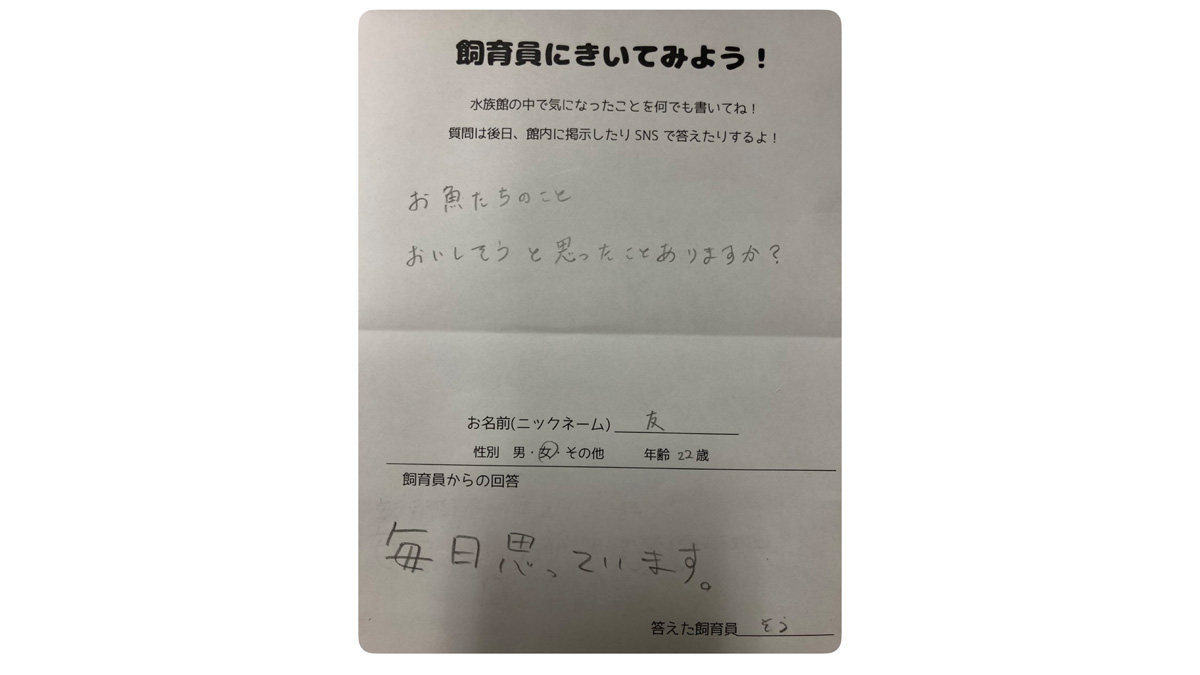 飼育員にきいてみよう！
水族館の中で気になったことを何でも書いてね！
質問は後日、館内に掲示したりSNSで答えたりするよ！
お魚たちのこと
おいしそうと思ったことありますか？
お名前(ニックネーム) 友
性別 男・女・その他 年齢 22歳
飼育員からの回答
毎日思っています。
答えた飼育員 そう